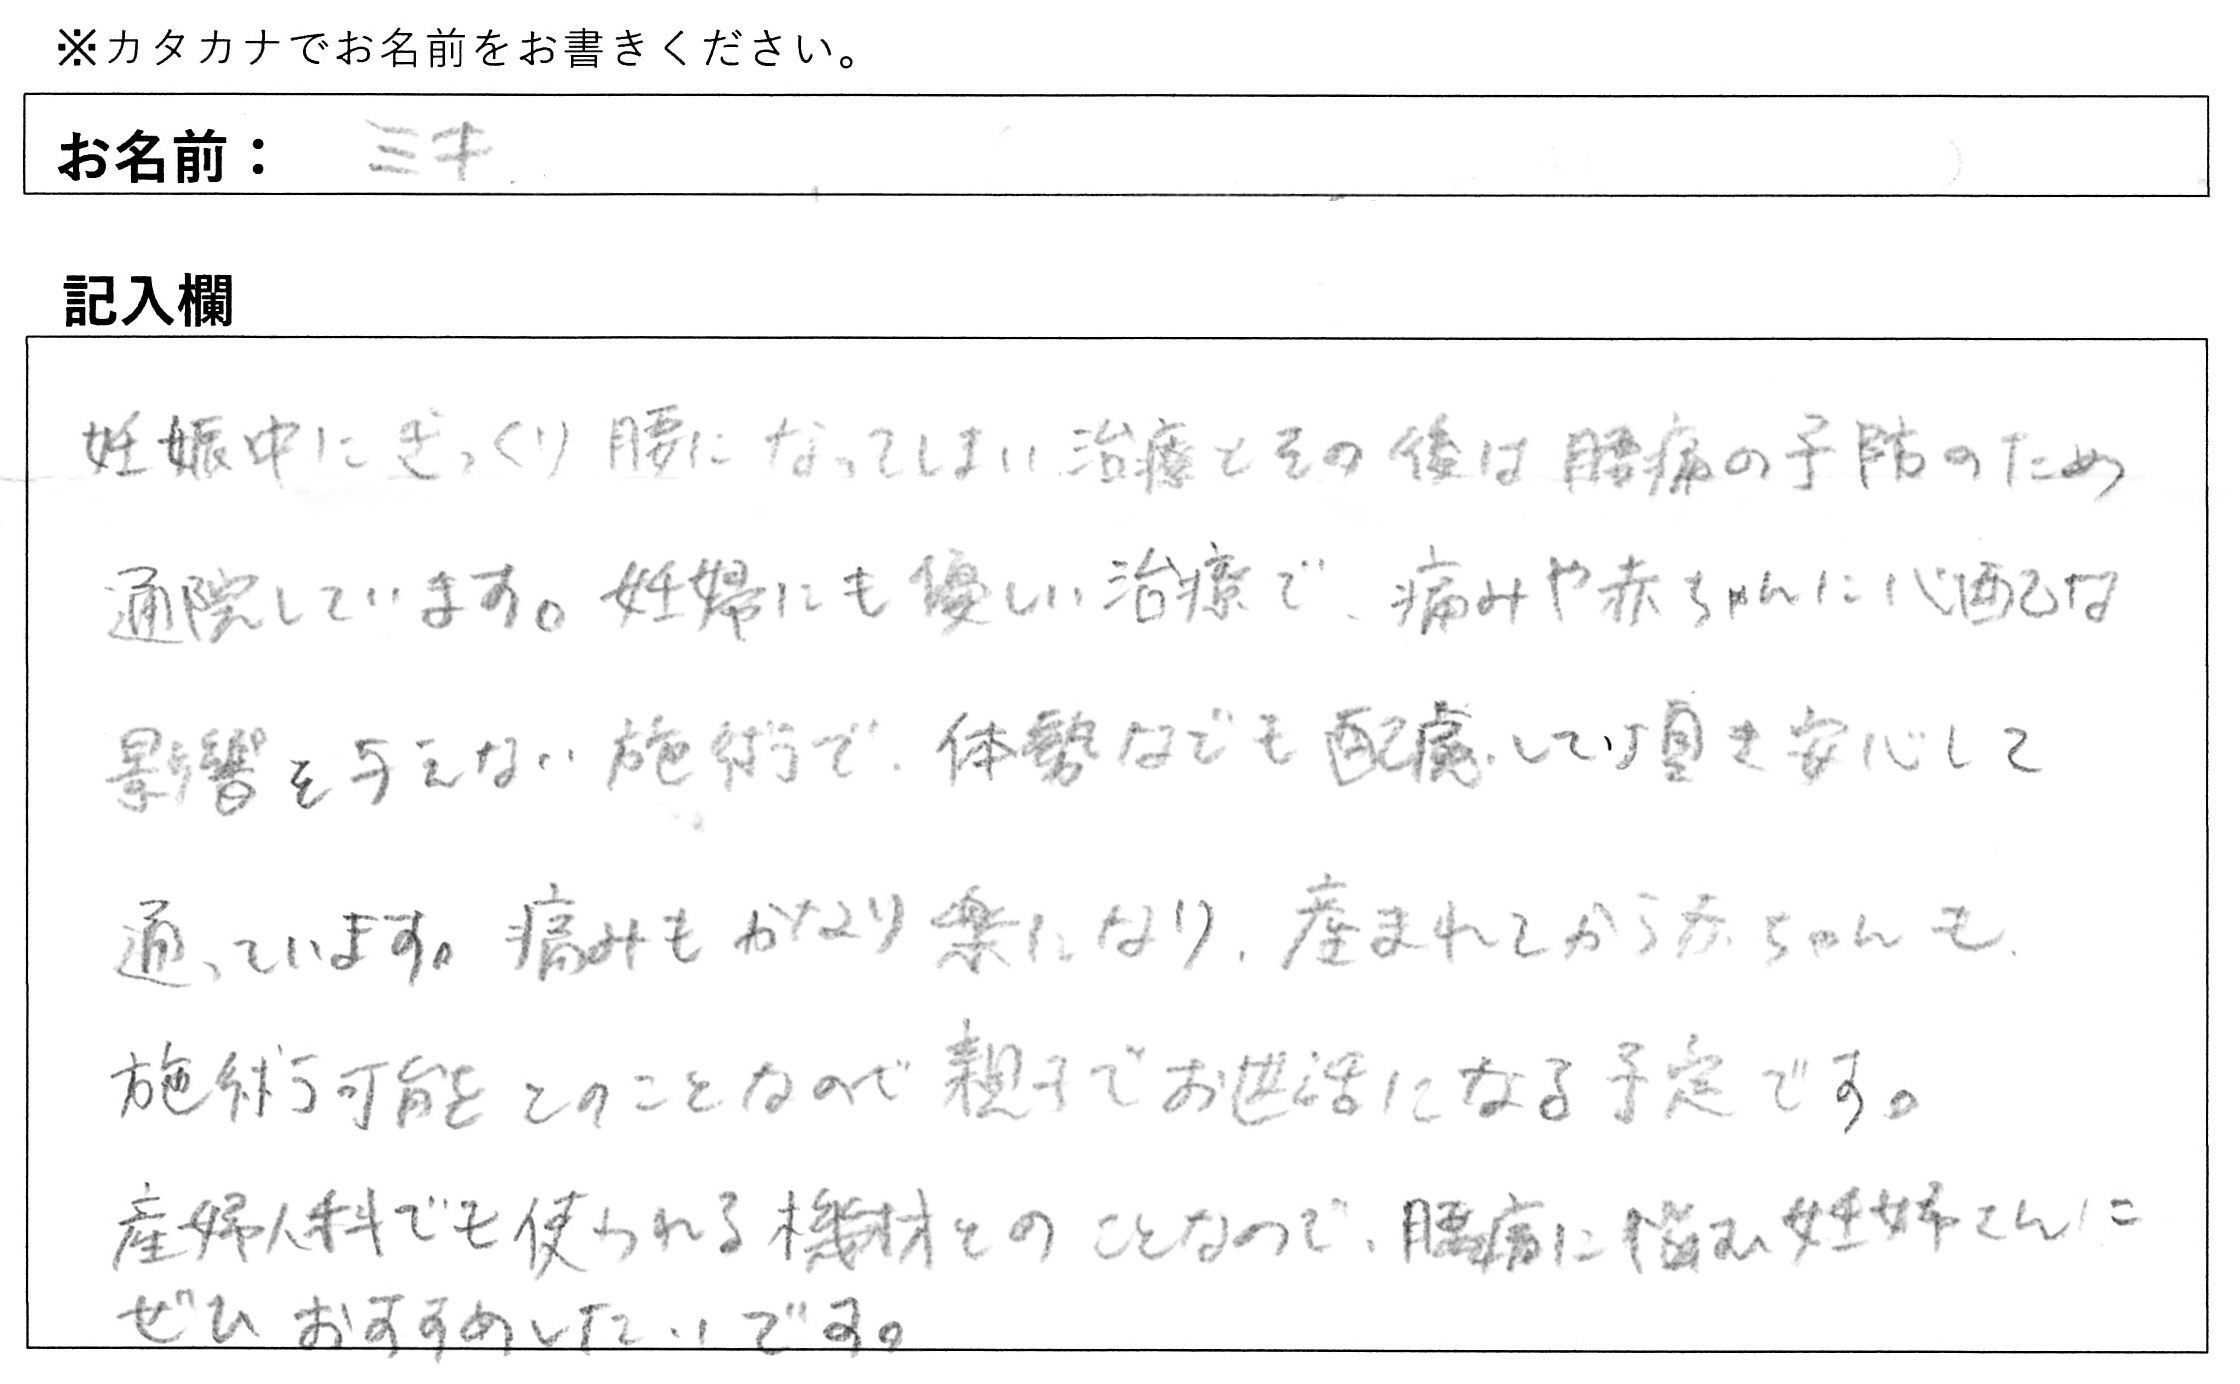 ※カタカナでお名前をお書きください。
お名前： ミキ
記入欄
妊娠中にぎっくり腰になってしまい治療とその後は腰痛の予防のため
通院しています。妊婦にも優しい治療で、痛みや赤ちゃんに心配な
影響を与えない施術で、体勢なども配慮して頂き安心して
通っています。痛みもかなり楽になり、産まれてから赤ちゃんも
施術可能とのことなので親子でお世話になる予定です。
産婦人科でも使われる機材とのことなので、腰痛に悩む妊婦さんに
ぜひおすすめしたいです。